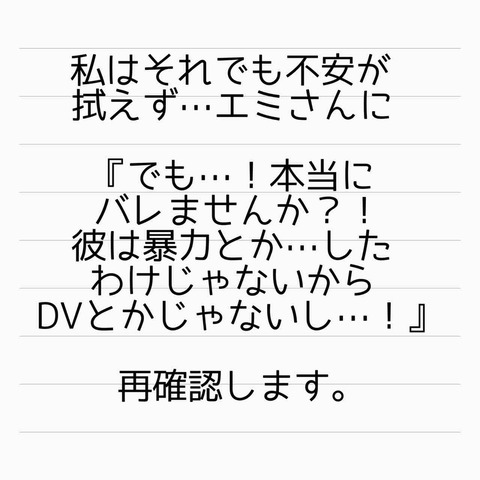 私はそれでも不安が
拭えず…エミさんに
『でも…！本当に
バレませんか？！
彼は暴力とか…した
わけじゃないから
DVとかじゃないし…！』
再確認します。